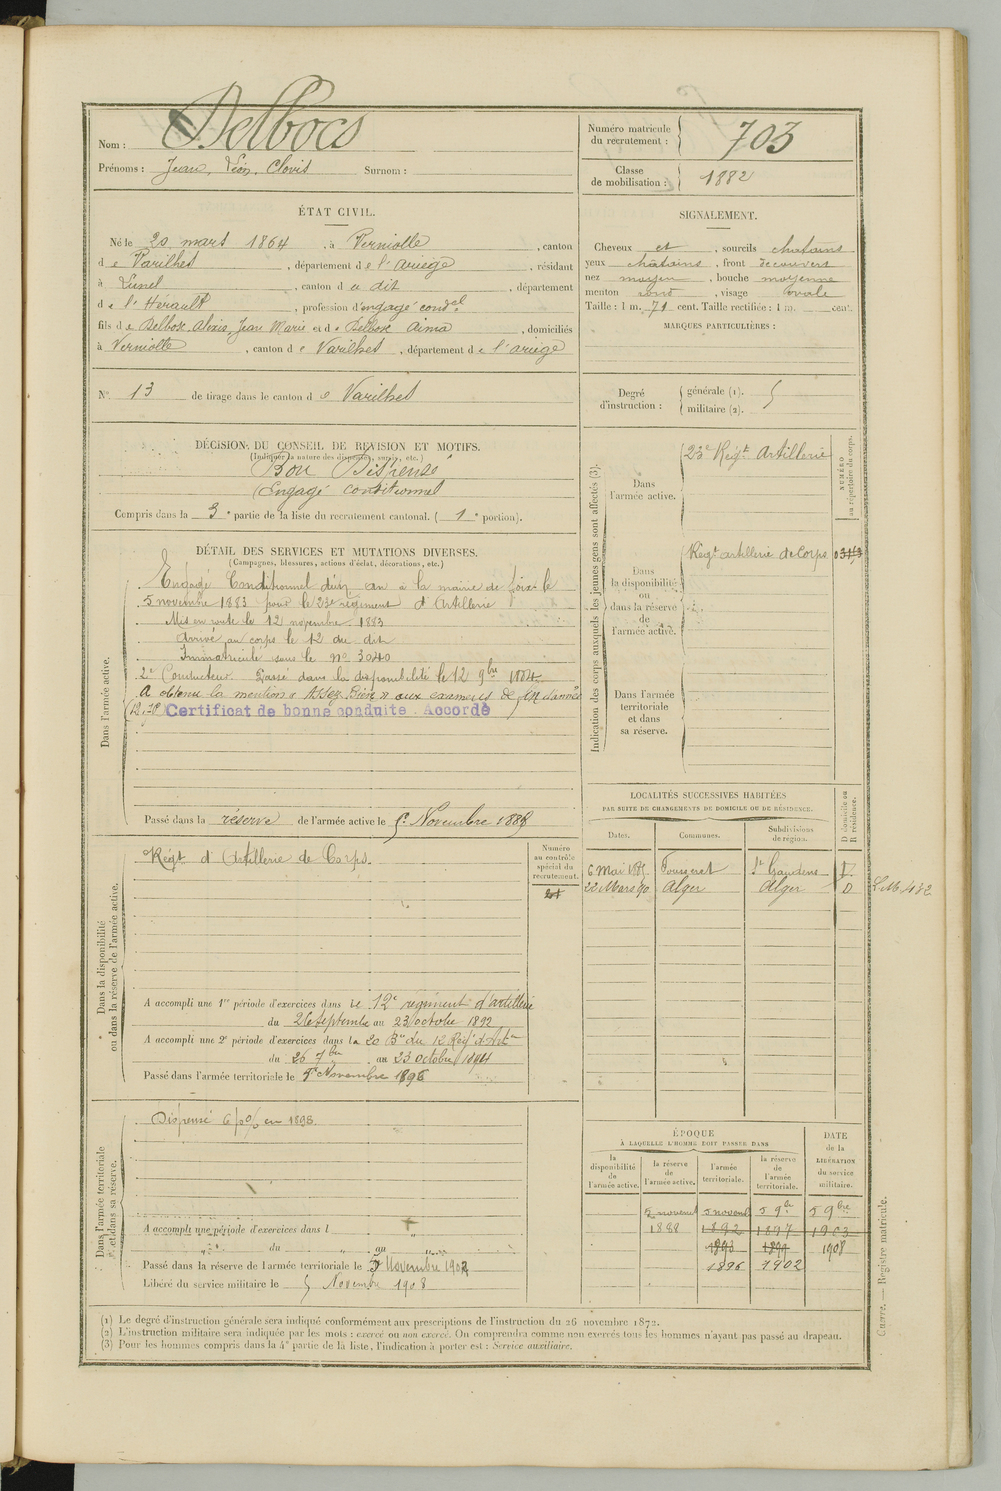 Nom : Delbocs
Prénoms : Jean, Léon, Clovis Surnom :
Numéro matricule du recrutement : 703
Classe de mobilisation : 1882
ÉTAT CIVIL.
Né le 20 mars 1864, à Verniolle, canton
de Varilhes, département de l'Ariège, résidant
à Lunel, canton du dit, département
de l'Hérault, profession d'engagé condel
fils de Delboz, Alexis, Jean Marie et de Delboz Anna, domiciliés
à Verniolle, canton de Varilhes, département de l'ariège
N° 13 de tirage dans le canton de Varilhes
SIGNALEMENT.
Cheveux et, sourcils chatains
yeux chatains, front découvert
nez moyen, bouche moyenne
menton rond, visage ovale
Taille : 1 m. 71 cent. Taille rectifiée : 1 m. cent.
MARQUES PARTICULIÈRES :
Degré d'instruction : générale (1). militaire (2).
DÉCISION DU CONSEIL DE REVISION ET MOTIFS.
(Indiquer la nature des dispenses, sursis, etc.)
Bon Dispensé
Engagé conditionnel
Compris dans la 3e partie de la liste du recrutement cantonal. (1e portion).
DÉTAIL DES SERVICES ET MUTATIONS DIVERSES.
(Campagnes, blessures, actions d'éclat, décorations, etc.)
Dans l'armée active.
Engagé Conditionnel d'un an à la mairie de Foix le
5 novembre 1883 pour le 23e régiment d'Artillerie
Mis en route le 12 novembre 1883
Arrivé au corps le 12 du dit
Immatriculé sous le no 3040
2e Conducteur. Passé dans la disponibilité le 12 9bre 1884
A obtenu la mention « Assez Bien » aux examens de fin d'année
Certificat de bonne conduite Accordé
Passé dans la réserve de l'armée active le 5 Novembre 1888
Indication des corps auxquels les jeunes gens sont affectés (3).
NUMÉRO au répertoire du corps.
Dans l'armée active.
23e Régt Artillerie
Dans la disponibilité ou dans la réserve de l'armée active.
Régt artillerie de Corps
Dans l'armée territoriale et dans sa réserve.
LOCALITÉS SUCCESSIVES HABITÉES
PAR SUITE DE CHANGEMENTS DE DOMICILE OU DE RÉSIDENCE.
Dates. Communes. Subdivisions de région. D domicile ou R résidence.
6 Mai 1885 Fousseret St Gaudens D
22 Mars 90 Alger Alger D
Dans la disponibilité ou dans la réserve de l'armée active.
Régt d'Artillerie de Corps.
Numéro au contrôle spécial du recrutement.
A accompli une 1re période d'exercices dans le 12e régiment d'artillerie
du 26 Septembre au 23 octobre 1892
A accompli une 2e période d'exercices dans la 20 Bie du 12 Régt d'Artie
du 26 7bre au 23 octobre 1894
Passé dans l'armée territoriale le 5 Novembre 1896
Dans l'armée territoriale et dans sa réserve.
A accompli une période d'exercices dans l
du au
Passé dans la réserve de l'armée territoriale le 5 Novembre 1902
Libéré du service militaire le 5 Novembre 1908
ÉPOQUE
À LAQUELLE L'HOMME DOIT PASSER DANS
la disponibilité de l'armée active. la réserve de l'armée active. l'armée territoriale. la réserve de l'armée territoriale.
DATE de la LIBÉRATION du service militaire.
5 novembre 5 novemb 5 9bre 5 9bre
1888 1892 1897 1903
1893 1899 1908
1896 1902
Guerre. — Registre matricule.
(1) Le degré d'instruction générale sera indiqué conformément aux prescriptions de l'instruction du 26 novembre 1872.
(2) L'instruction militaire sera indiquée par les mots : exercé ou non exercé. On comprendra comme non exercés tous les hommes n'ayant pas passé au drapeau.
(3) Pour les hommes compris dans la 4e partie de la liste, l'indication à porter est : Service auxiliaire.